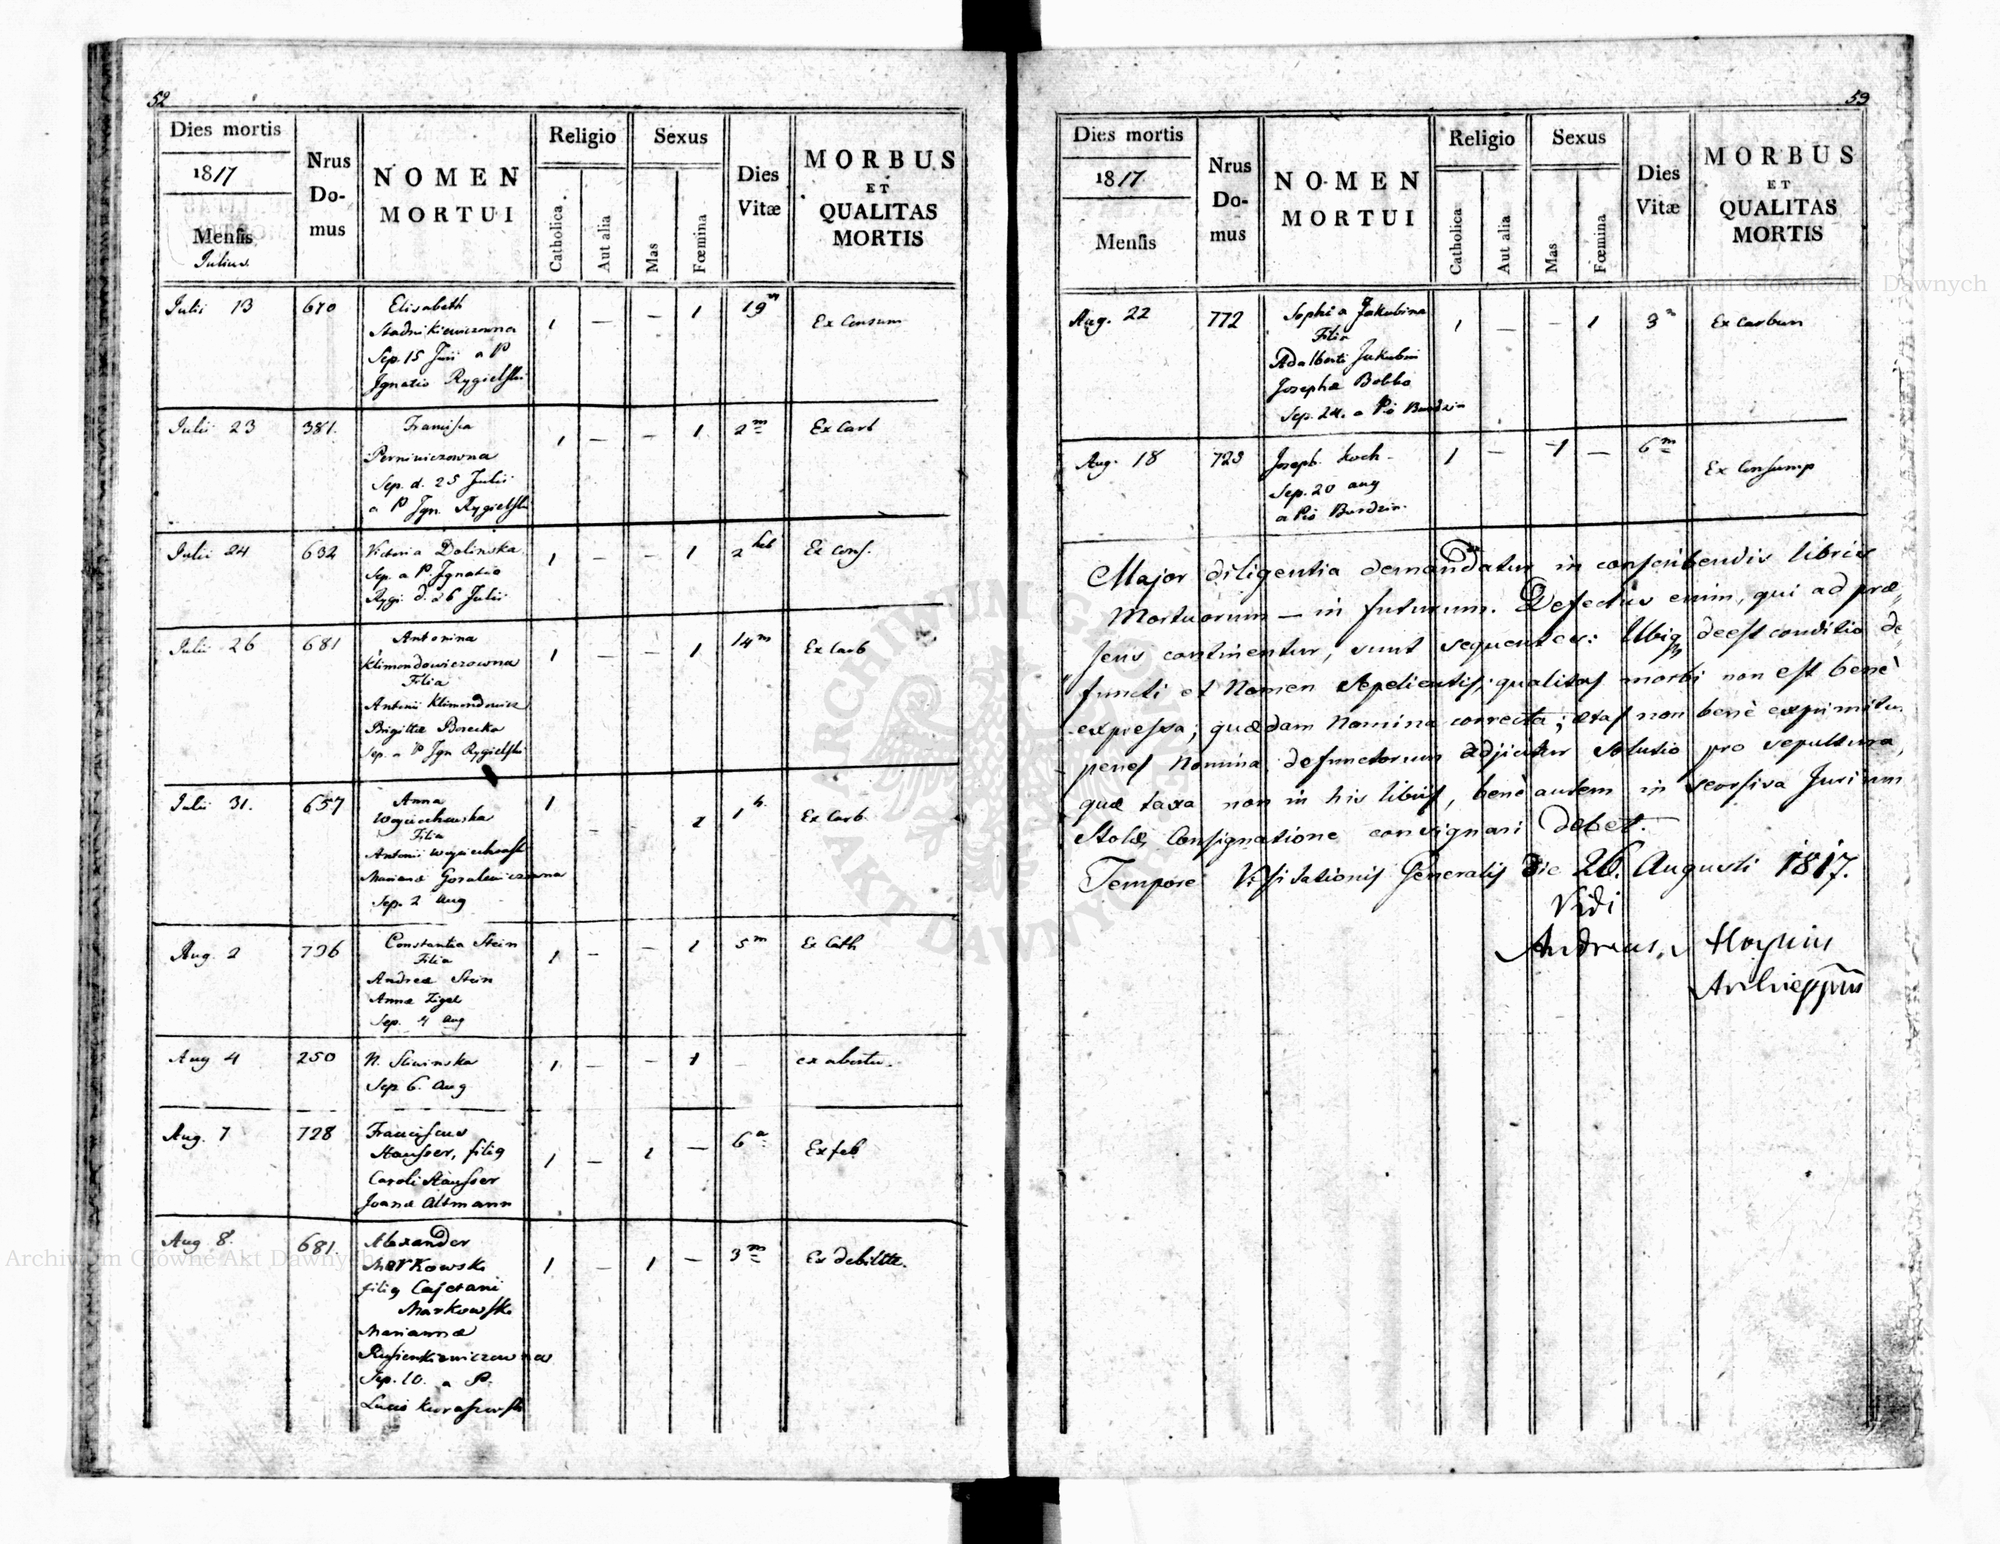 52
Dies mortis
1817
Mensis
Julius
Nrus
Do-
mus
NOMEN
MORTUI
Religio
Catholica
Aut alia
Sexus
Mas
Fœmina
Dies
Vitæ
MORBUS
ET
QUALITAS
MORTIS
Julii 13 670 Elisabeth 1 — — 1 19 m Ex Consum
Stadnikiewiczowna
Sep. 15 Julii a P
Ignatio Rygielski
Julii 23 381. Francisca 1 — — 1 2 m Ex Carb
Perniwiczowna
Sep. d. 25 Julii
a P Ign. Rygielski
Julii 24 632 Victoria Dolinska 1 — — 1 2 heb Ex cons.
Sep. a P. Ignatio
Rygi. d. 26 Julii
Julii 26 681 Antonina 1 — — 1 14 m Ex Carb
Klimondowiczowna
Filia
Antonii Klimondowicz
Brigittæ Borecka
Sep. a P Ign Rygielski
Julii 31. 657 Anna 1 — — 1 1 h. Ex Carb
Woyciechowska
Filia
Antonii Woyciechowski
Marianæ Goralewiczowna
Sep. 2 Aug
Aug. 2 736 Constantia Stein 1 — — 1 5 m Ex Cath
Filia
Andreæ Stein
Annæ Zigel
Sep. 4 Aug
Aug 4 250 N. Sliwinska 1 — — 1 — ex abortu.
Sep. 6. Aug
Aug. 7 728 Franciscus 1 — 1 — 6 a Ex feb
Stausser, filig
Caroli Stausser
Joanæ Altmann
Aug 8. 681. Alexander 1 — 1 — 3 m Ex debilitte.
Markowski
filig Cajetani
Markowski
Mariannæ
Rusienkiewiczowna
Sep. 10. a P.
Lucio Kuraszewski
53
Dies mortis
1817
Mensis
Nrus
Do-
mus
NOMEN
MORTUI
Religio
Catholica
Aut alia
Sexus
Mas
Fœmina
Dies
Vitæ
MORBUS
ET
QUALITAS
MORTIS
Aug. 22 772 Sophia Jakubina 1 — — 1 3 m Ex Carbun
Filia
Adalberti Jakubini
Josephæ Bobka
Sep. 24. a Pio Burdzin
Aug. 18 723 Joseph. Koch 1 — 1 — 6 m Ex Consump
Sep. 20 aug
a Pio Burdzin.
Major diligentia demandatur in conscribendis libris
Mortuorum — in futurum. Defectus enim, qui ad præ
sens continentur, sunt sequentes: Ubiq deest conditio de
functi et Nomen sepelientis; qualitas morbi non est benè
expressa; quædam Nomina correcta; ætas non benè exprimitur
penes Nomina defunctorum adjicitur solutio pro sepultura,
quæ taxa non in his libris, benè autem in seorsiva Jurium
Stolæ Consignatione consignari debet.
Tempore Visitationis Generalis die 26. Augusti 1817.
Vidi
Andreas
Archieppus
ARCHIWUM GŁÓWNE AKT DAWNYCH
Archiwum Główne Akt Dawnych
Archiwum Główne Akt Dawnych